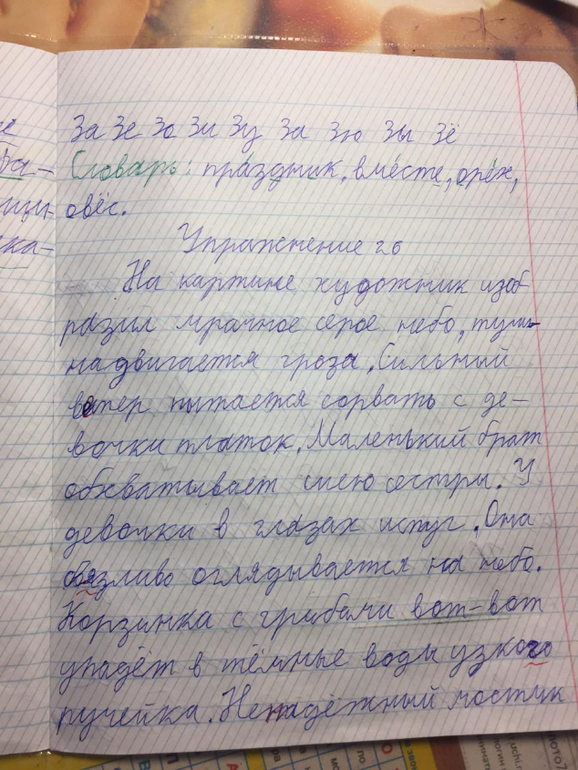 За Зе Зо Зи Зу За Зю Зы Зё
Словарь: праздник, вместе, орех,
овёс.
Упражнение 26
На картине художник изоб-
разил мрачное серое небо, тучи
надвигается гроза. Сильный
ветер пытается сорвать с де-
вочки платок. Маленький брат
обхватывает шею сестры. У
девочки в глазах испуг. Она
боязливо оглядывается на небо.
Корзинка с грибами вот-вот
упадёт в тёмные воды узкого
ручейка. Ненадёжный мостик